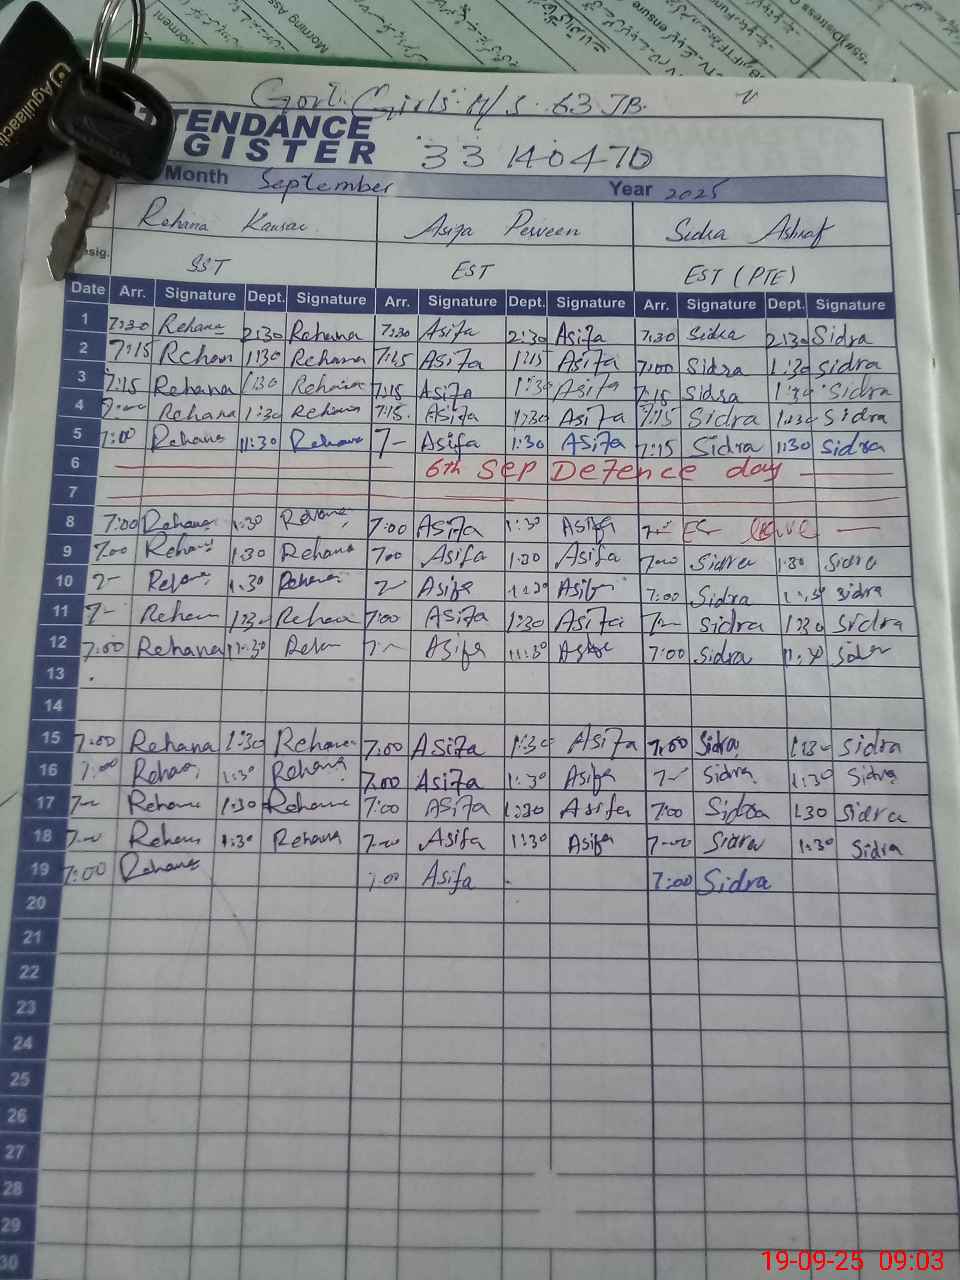 Govt. Girls H/S 63 JB.
TENDANCE
GISTER
33140470
Month September Year 2025
Rehana Kausar Asifa Perveen Sidra Ashraf
sig. SST EST EST (PTE)
Date Arr. Signature Dept. Signature Arr. Signature Dept. Signature Arr. Signature Dept. Signature
1 7:30 Rehana 2:30 Rehana 7:30 Asifa 2:30 Asifa 7:30 Sidra 2:30 Sidra
2 7:15 Rehan 1:30 Rehana 7:15 Asifa 1:15 Asifa 7:00 Sidra 1:30 Sidra
3 7:15 Rehana 1:30 Rehana 7:15 Asifa 1:30 Asifa 7:15 Sidra 1:30 Sidra
4 7:00 Rehana 1:30 Rehana 7:15 Asifa 1:30 Asifa 7:15 Sidra 1:30 Sidra
5 7:00 Rehana 11:30 Rehana 7- Asifa 1:30 Asifa 7:15 Sidra 11:30 Sidra
6 6th Sep Defence day
7
8 7:00 Rehana 1:30 Rehana 7:00 Asifa 1:30 Asifa leave
9 7:00 Rehana 1:30 Rehana 7:00 Asifa 1:30 Asifa 7:00 Sidra 1:30 Sidra
10 Rehana 1:30 Rehana Asifa 1:30 Asifa 7:00 Sidra 1:30 Sidra
11 7- Rehana 1:30 Rehana 7:00 Asifa 1:30 Asifa 7- Sidra 1:30 Sidra
12 7:00 Rehana 11:30 Rehan Asifa 11:30 Asifa 7:00 Sidra 11:30 Sidra
13
14
15 7:00 Rehana 1:30 Rehana 7:00 Asifa 1:30 Asifa 7:00 Sidra 1:30 Sidra
16 7:00 Rehana 1:30 Rehana 7:00 Asifa 1:30 Asifa 7- Sidra 1:30 Sidra
17 7- Rehana 1:30 Rehana 7:00 Asifa 1:30 Asifa 7:00 Sidra 1:30 Sidra
18 7:00 Rehana 1:30 Rehana 7:00 Asifa 1:30 Asifa 7:00 Sidra 1:30 Sidra
19 7:00 Rehana 7:00 Asifa 7:00 Sidra
20
21
22
23
24
25
26
27
28
29
30
19-09-25 09:03